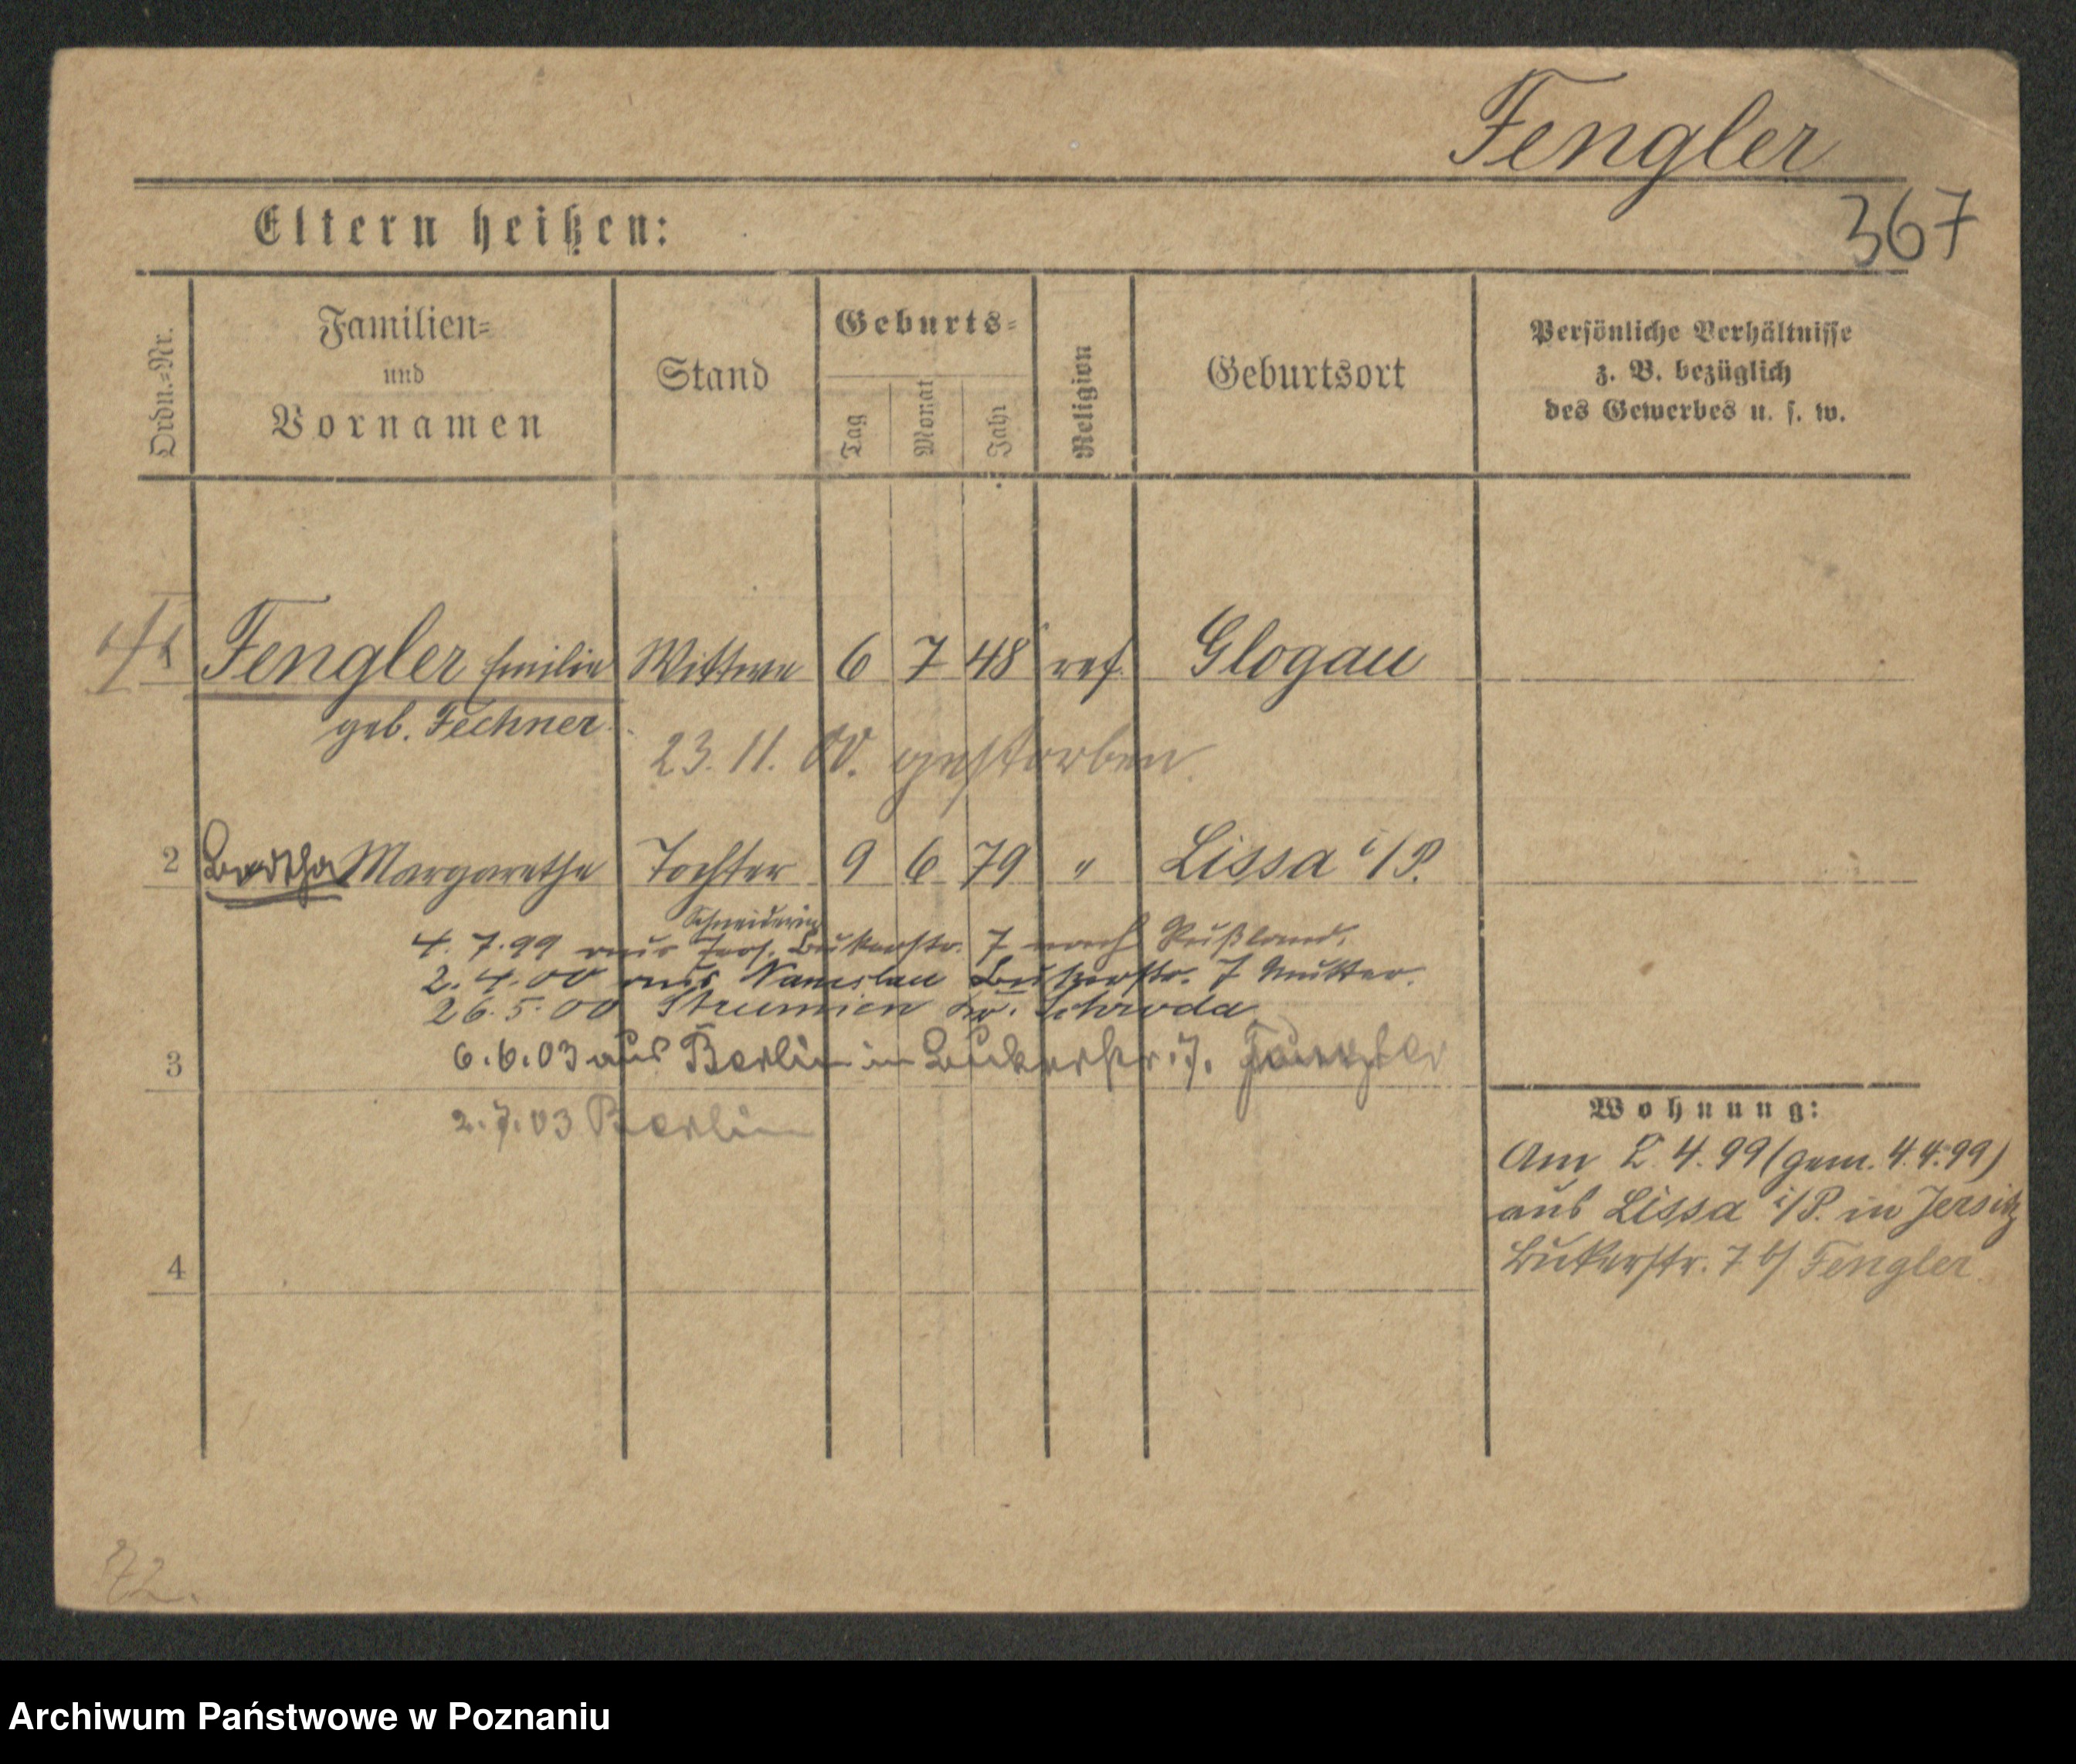 Fengler
367
Eltern heißen:
Ordn.-Nr.
Familien=
und
Vornamen
Stand
Geburts=
Tag
Monat
Jahr
Religion
Geburtsort
Persönliche Verhältnisse
z. B. bezüglich
des Gewerbes u. s. w.
1 Fengler Emilie Wittwe 6 7 48 ref. Glogau
geb. Fechner
23. 11. 00. gestorben.
2 Bertha Margarethe Tochter 9 6 79 " Lissa i/P.
Schneiderin
4. 7. 99 aus Jers. Bukerstr. 7 nach Rußland.
2. 4. 00 aus Namslau Bukerstr. 7 Mutter.
26. 5. 00 Strumien Kr. Schroda
3 6. 6. 03 aus Berlin in Bukerstr. 7.
2. 7. 03 Berlin
Wohnung:
Am 2. 4. 99 (gem. 4. 4. 99)
aus Lissa i/P. in Jersitz
Bukerstr. 7 b/ Fengler.
4
72.
Archiwum Państwowe w Poznaniu